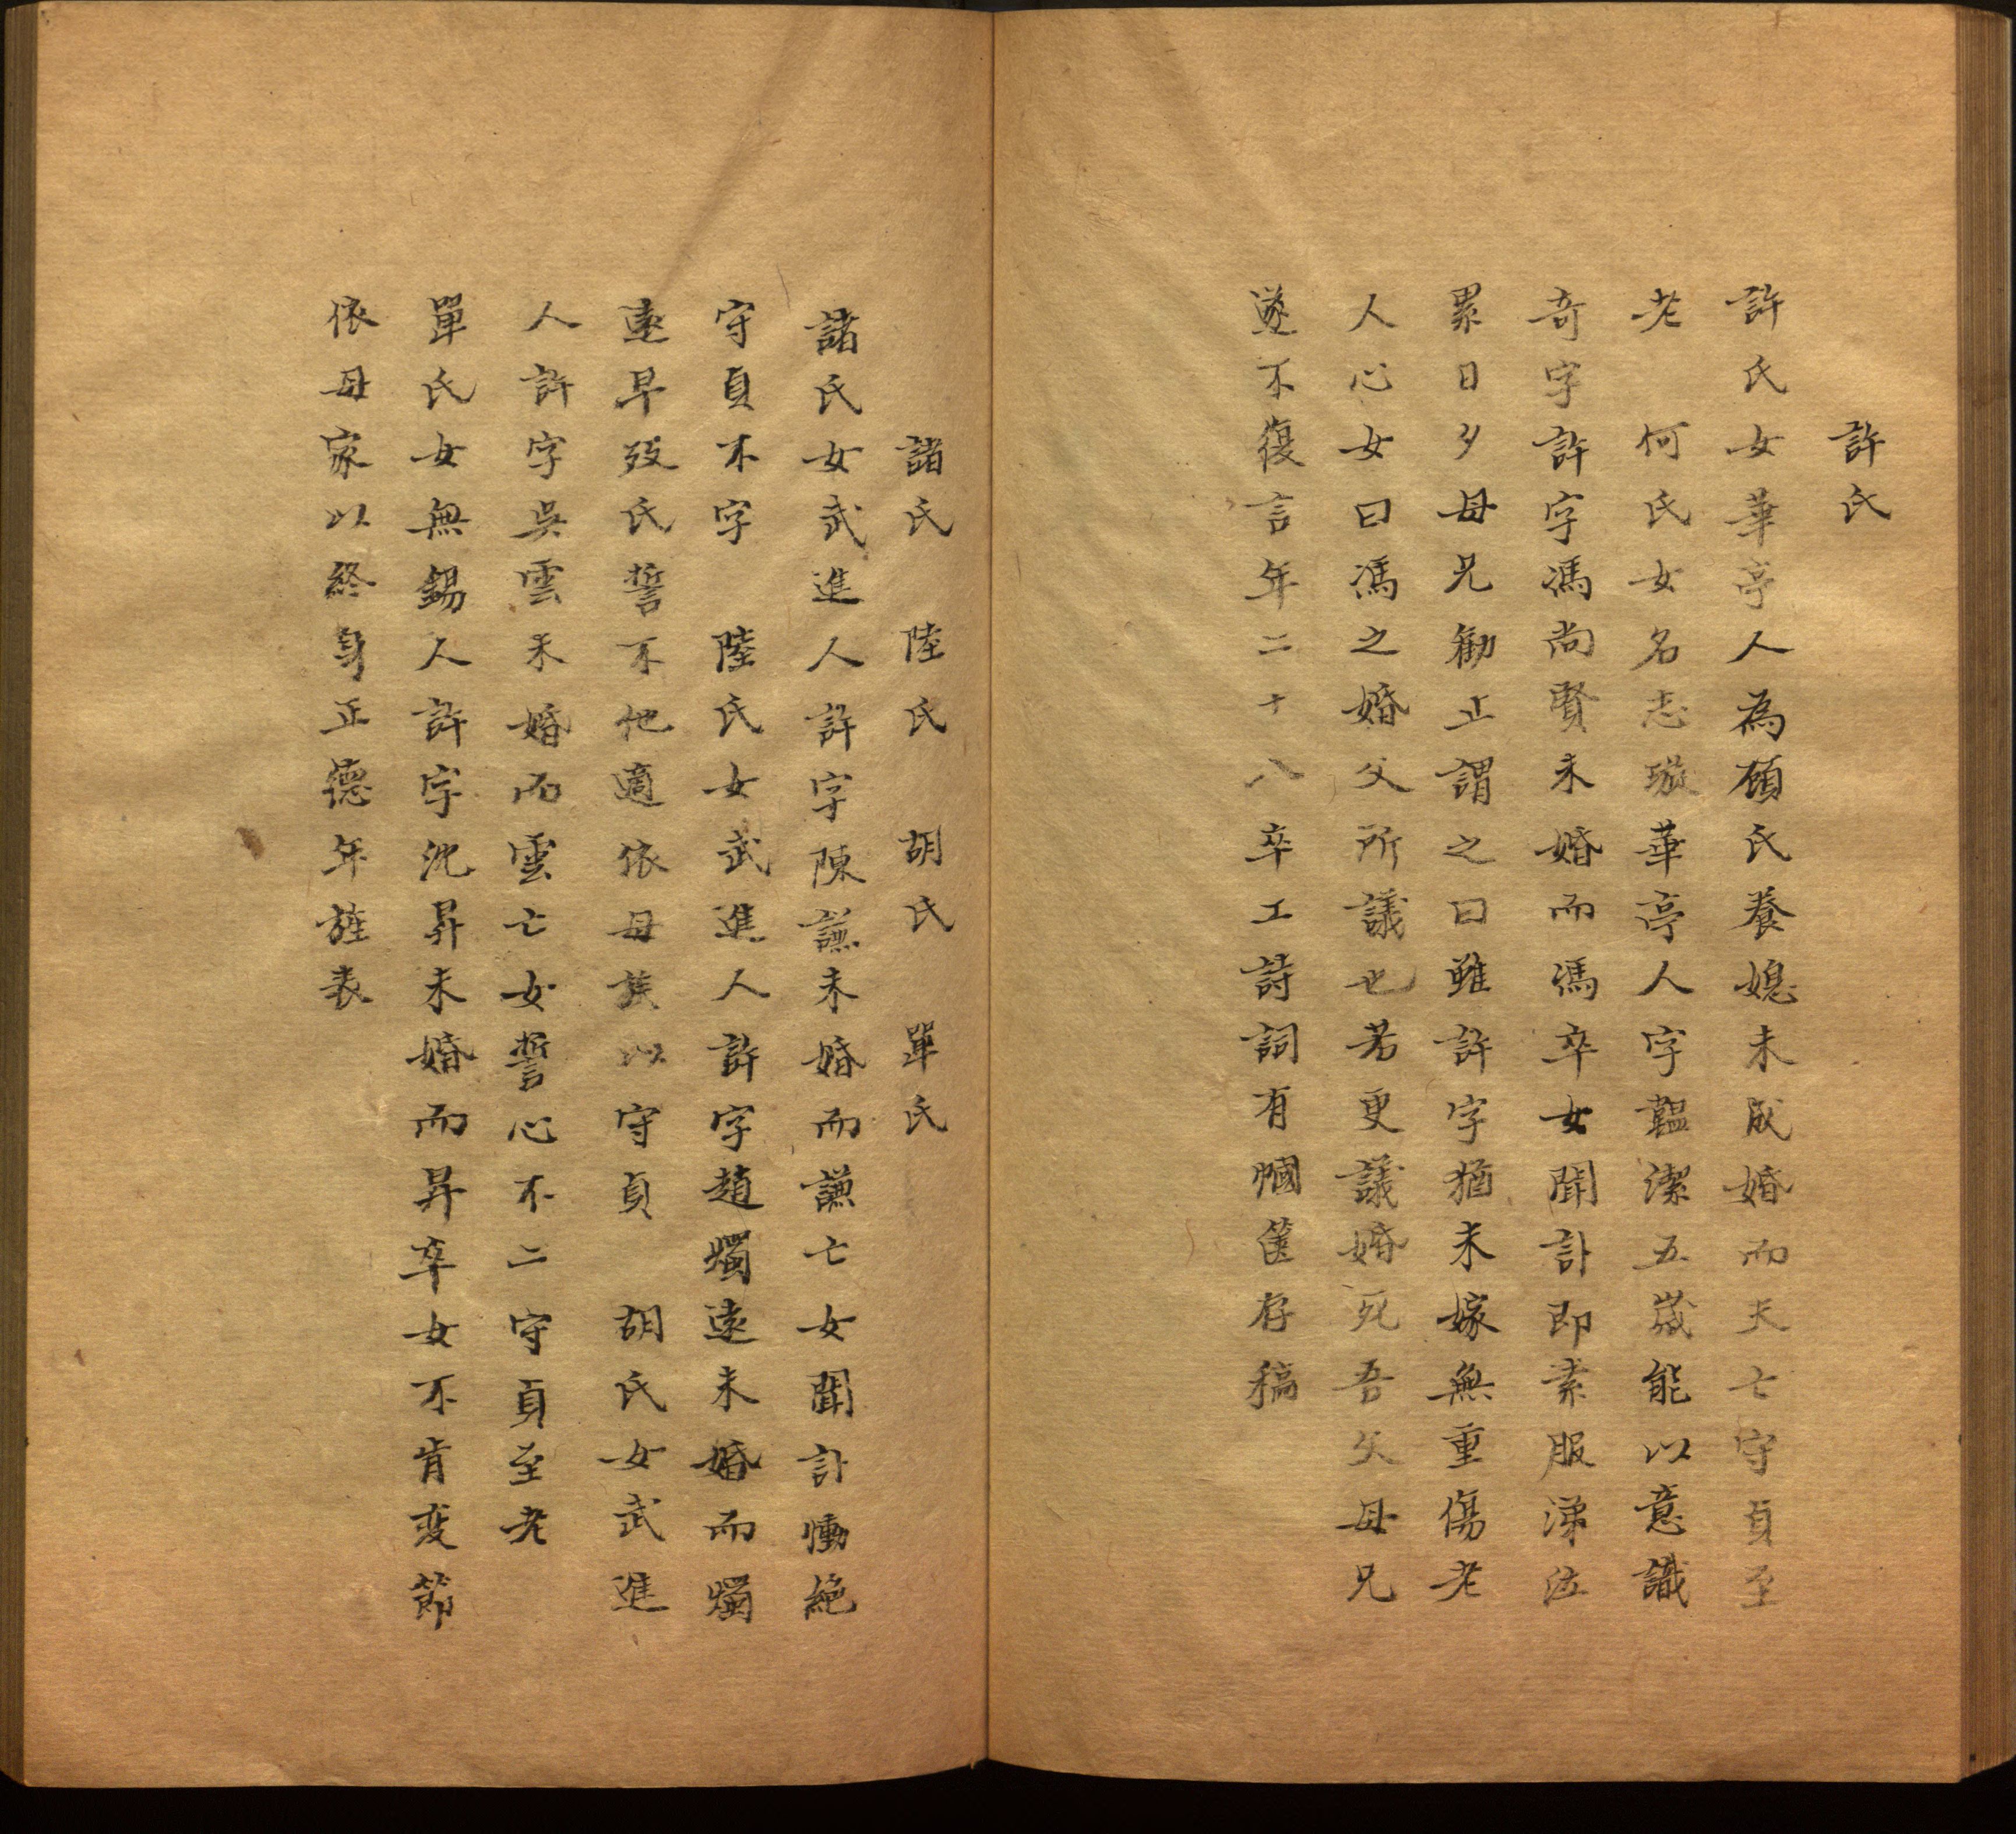 許氏
許氏女華亭人為顧氏養媳未成婚而夭亡守貞至
老　何氏女名志璇華亭人字韞潔五歲能以意識
奇字許字馮尚賢未婚而馮卒女聞訃即素服涕泣
累日夕母兄勸止謂之曰雖許字猶未嫁無重傷老
人心女曰馮之婚父所議也若更議婚死吾父母兄
遂不復言年二十八卒工詩詞有幗篋存稿
諸氏　陸氏　胡氏　單氏
諸氏女武進人許字陳謙未婚而謙亡女聞訃慟絶
守貞不字　陸氏女武進人許字趙燭遠未婚而燭
遠早歿氏誓不他適依母族以守貞　胡氏女武進
人許字吳雲未婚而雲亡女誓心不二守貞至老
單氏女無錫人許字沈昇未婚而昇卒女不肯变節
依母家以終身正德年旌表